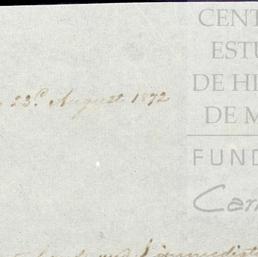 CENT
ESTU
DE HI
DE M
FUND
Car
23d August 1872
immediat